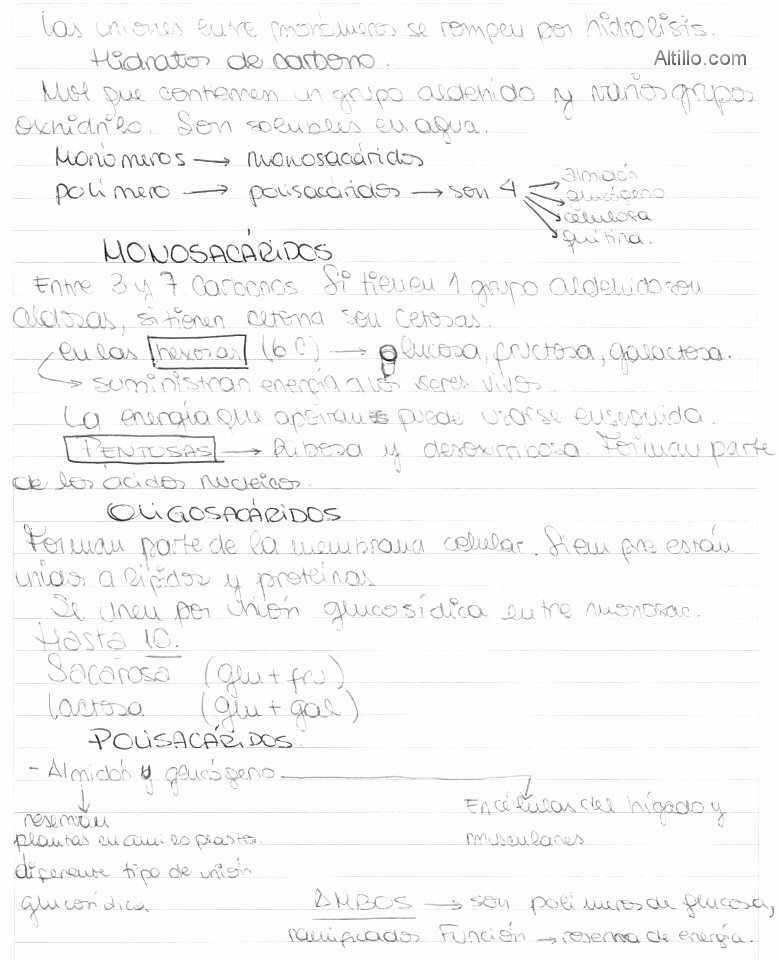 Las uniones entre monómeros se rompen por hidrólisis.
Hidratos de carbono.
Altillo.com
Mol que contienen un grupo aldehido y varios grupos
oxhidrilo. Son solubles en agua.
Monómeros → monosacáridos
polímero → polisacáridos → son 4
almidón
glucógeno
celulosa
quitina.
MONOSACÁRIDOS
Entre 3 y 7 carbonos Si tienen 1 grupo aldehido son
aldosas, si tienen cetona son cetosas.
en las hexosas (6C) → glucosa, fructosa, galactosa.
→ suministran energía a los seres vivos.
La energía que aportan puede usarse enseguida.
PENTOSAS → Ribosa y desoxirribosa. Forman parte
de los ácidos nucleicos.
OLIGOSACÁRIDOS
Forman parte de la membrana celular. Siempre están
unidos a lípidos y proteínas
Se unen por unión glucosídica entre monosac.
Hasta 10.
Sacarosa (glu + fru)
Lactosa (glu + gal)
POLISACÁRIDOS
- Almidón y glucógeno
reservan
plantas en amiloplasto.
diferente tipo de unión
glucosídica
En células del hígado y
musculares
AMBOS → son polímeros de glucosa,
ramificados Función → reserva de energía.